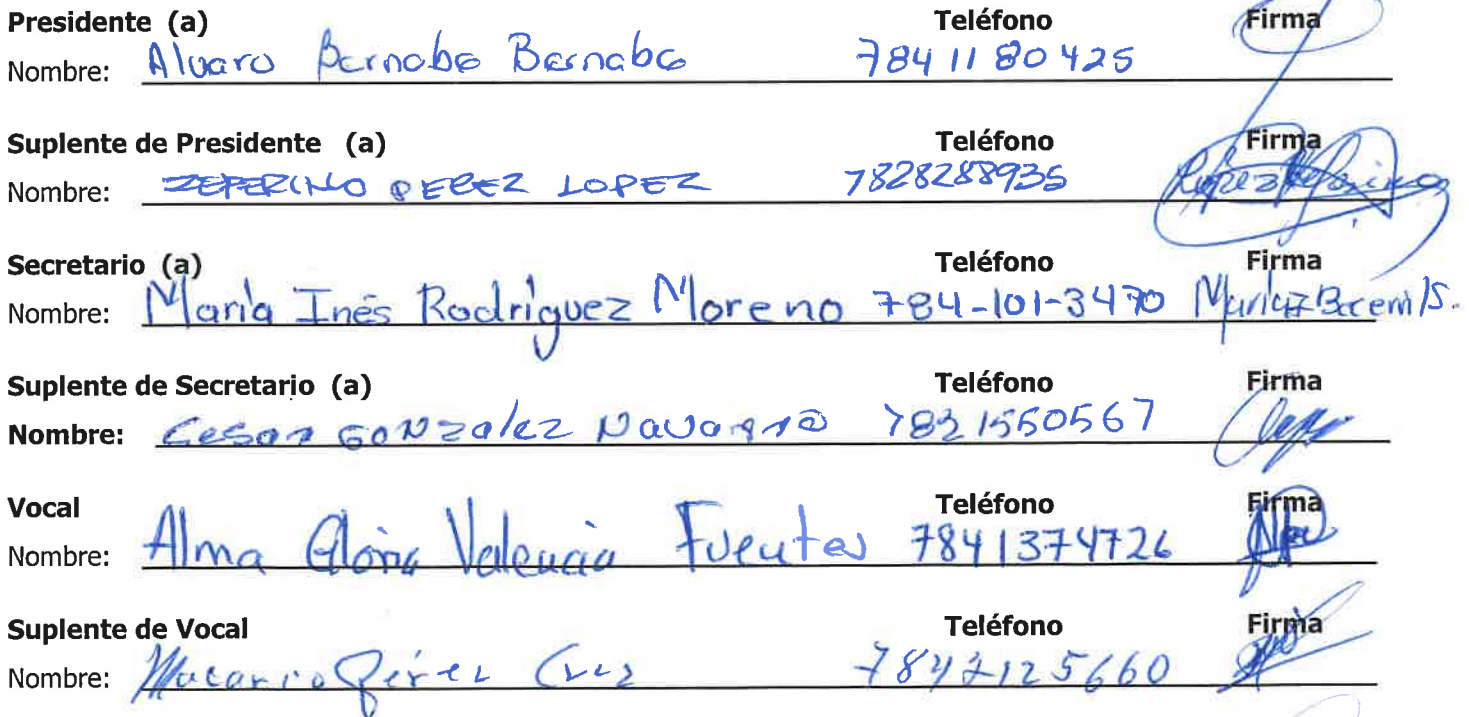 Presidente (a) Teléfono Firma
Nombre: Alvaro Bernabe Bernabe 7841180425
Suplente de Presidente (a) Teléfono Firma
Nombre: ZEFERINO PEREZ LOPEZ 7828288935
Secretario (a) Teléfono Firma
Nombre: María Inés Rodríguez Moreno 784-101-3470
Suplente de Secretario (a) Teléfono Firma
Nombre: Cesar GONzalez Navarro 7821550567
Vocal Teléfono Firma
Nombre: Alma Gloria Valencia Fuentes 7841374726
Suplente de Vocal Teléfono Firma
Nombre: Macario Pérez Cruz